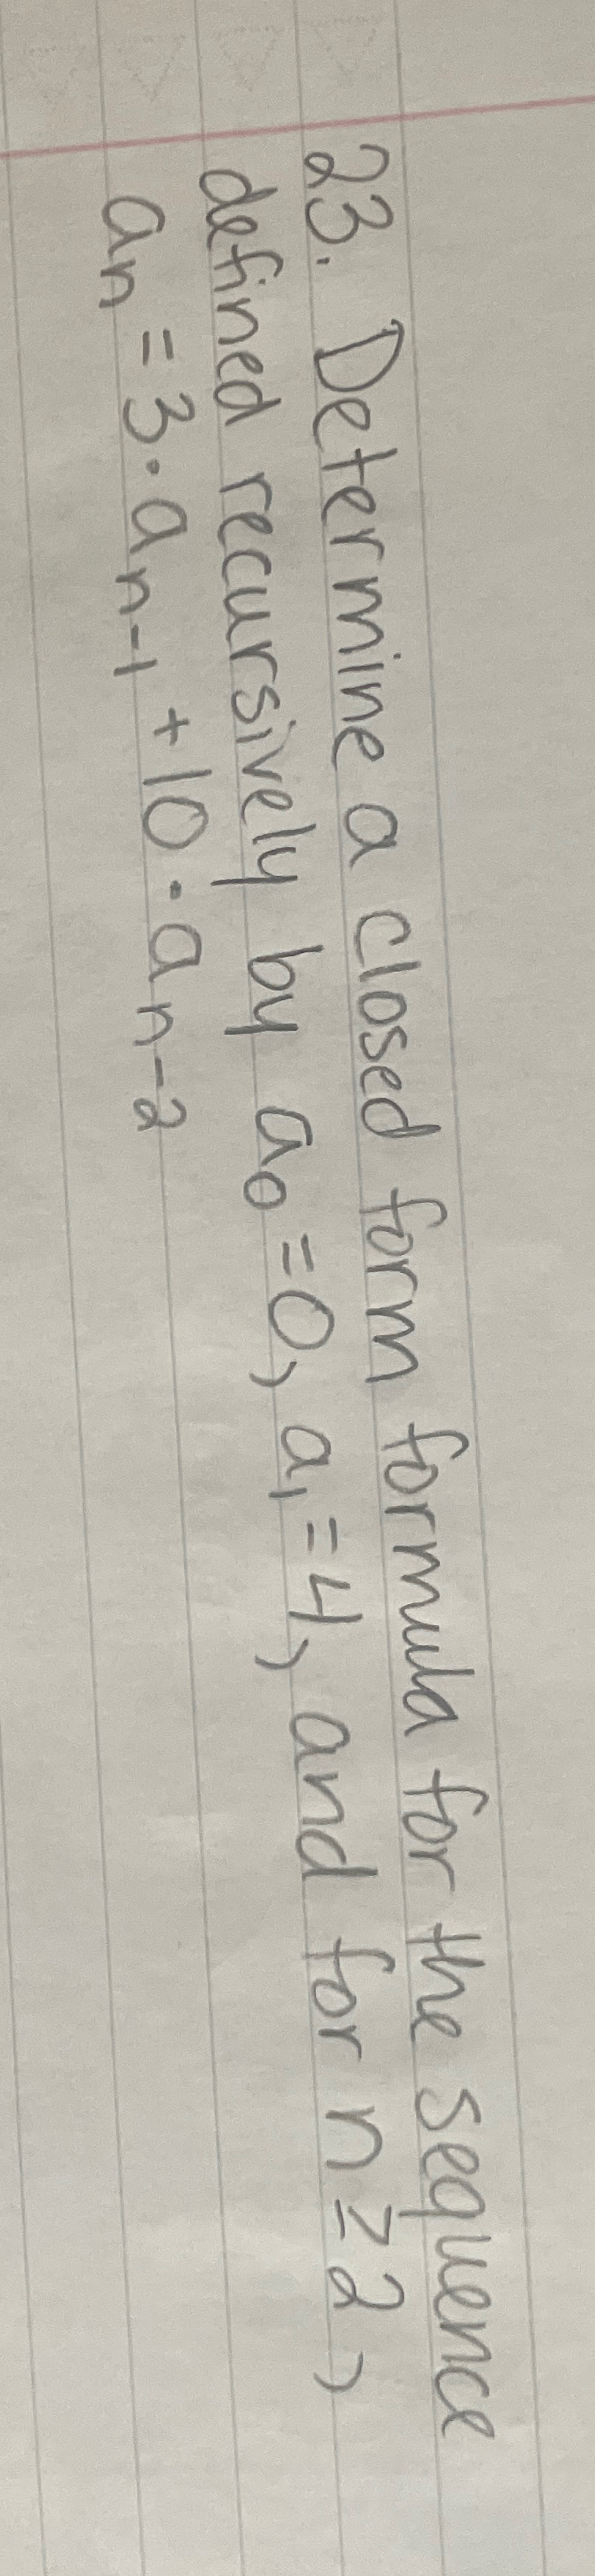 23. Determine a closed form formula for the sequence
defined recursively by a₀ = 0, a₁ = 4, and for n ≥ 2,
aₙ = 3 · aₙ₋₁ + 10 · aₙ₋₂